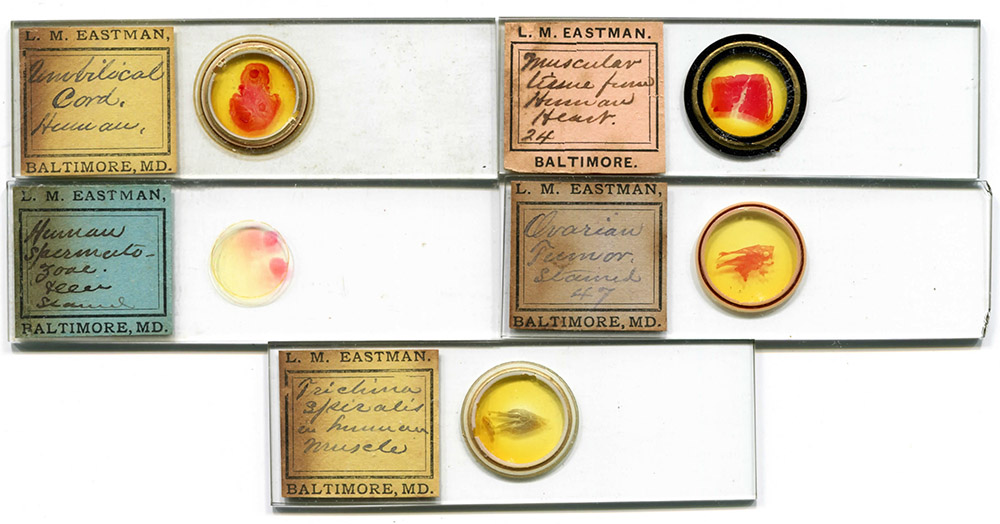 L. M. EASTMAN,
Umbilical
Cord.
Human.
BALTIMORE, MD.
L. M. EASTMAN.
Muscular
tissue from
Human
Heart.
24
BALTIMORE.
L. M. EASTMAN,
Human
Spermato-
zoae.
Stained
BALTIMORE, MD.
L. M. EASTMAN,
Ovarian
Tumor.
Stained
47
BALTIMORE, MD.
L. M. EASTMAN.
Trichina
Spiralis
in human
muscle
BALTIMORE, MD.